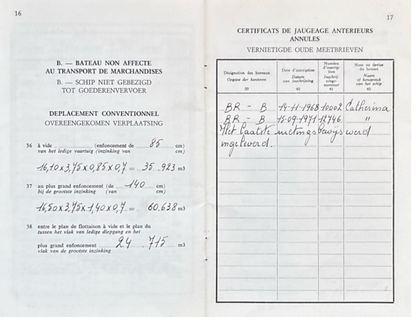 16
B. — BATEAU NON AFFECTE
AU TRANSPORT DE MARCHANDISES
B. — SCHIP NIET GEBEZIGD
TOT GOEDERENVERVOER
DEPLACEMENT CONVENTIONNEL
OVEREENGEKOMEN VERPLAATSING
36 à vide (enfoncement de 85 cm)
van het ledige vaartuig (inzinking van cm)
16,10 x 3,75 x 0,85 x 0,7 = 35.923 m3
37 au plus grand enfoncement (de 140 cm)
bij de grootste inzinking (van cm)
16,50 x 3,75 x 1,40 x 0,7 = 60.638 m3
38 entre le plan de flottaison à vide et le plan du
tussen het vlak van ledige diepgang en het
plus grand enfoncement 24.715 m3
vlak van de grootste inzinking
17
CERTIFICATS DE JAUGEAGE ANTERIEURS
ANNULES
VERNIETIGDE OUDE MEETBRIEVEN
Désignation des bureaux
Date d'inscription
Datum van inschrijving
39 40 41 42
BR - B 19-11-1968 10002 Catharina
BR - B 15-09-1971 12746 "
Het laatste metingsbewijs werd
ingeleverd.